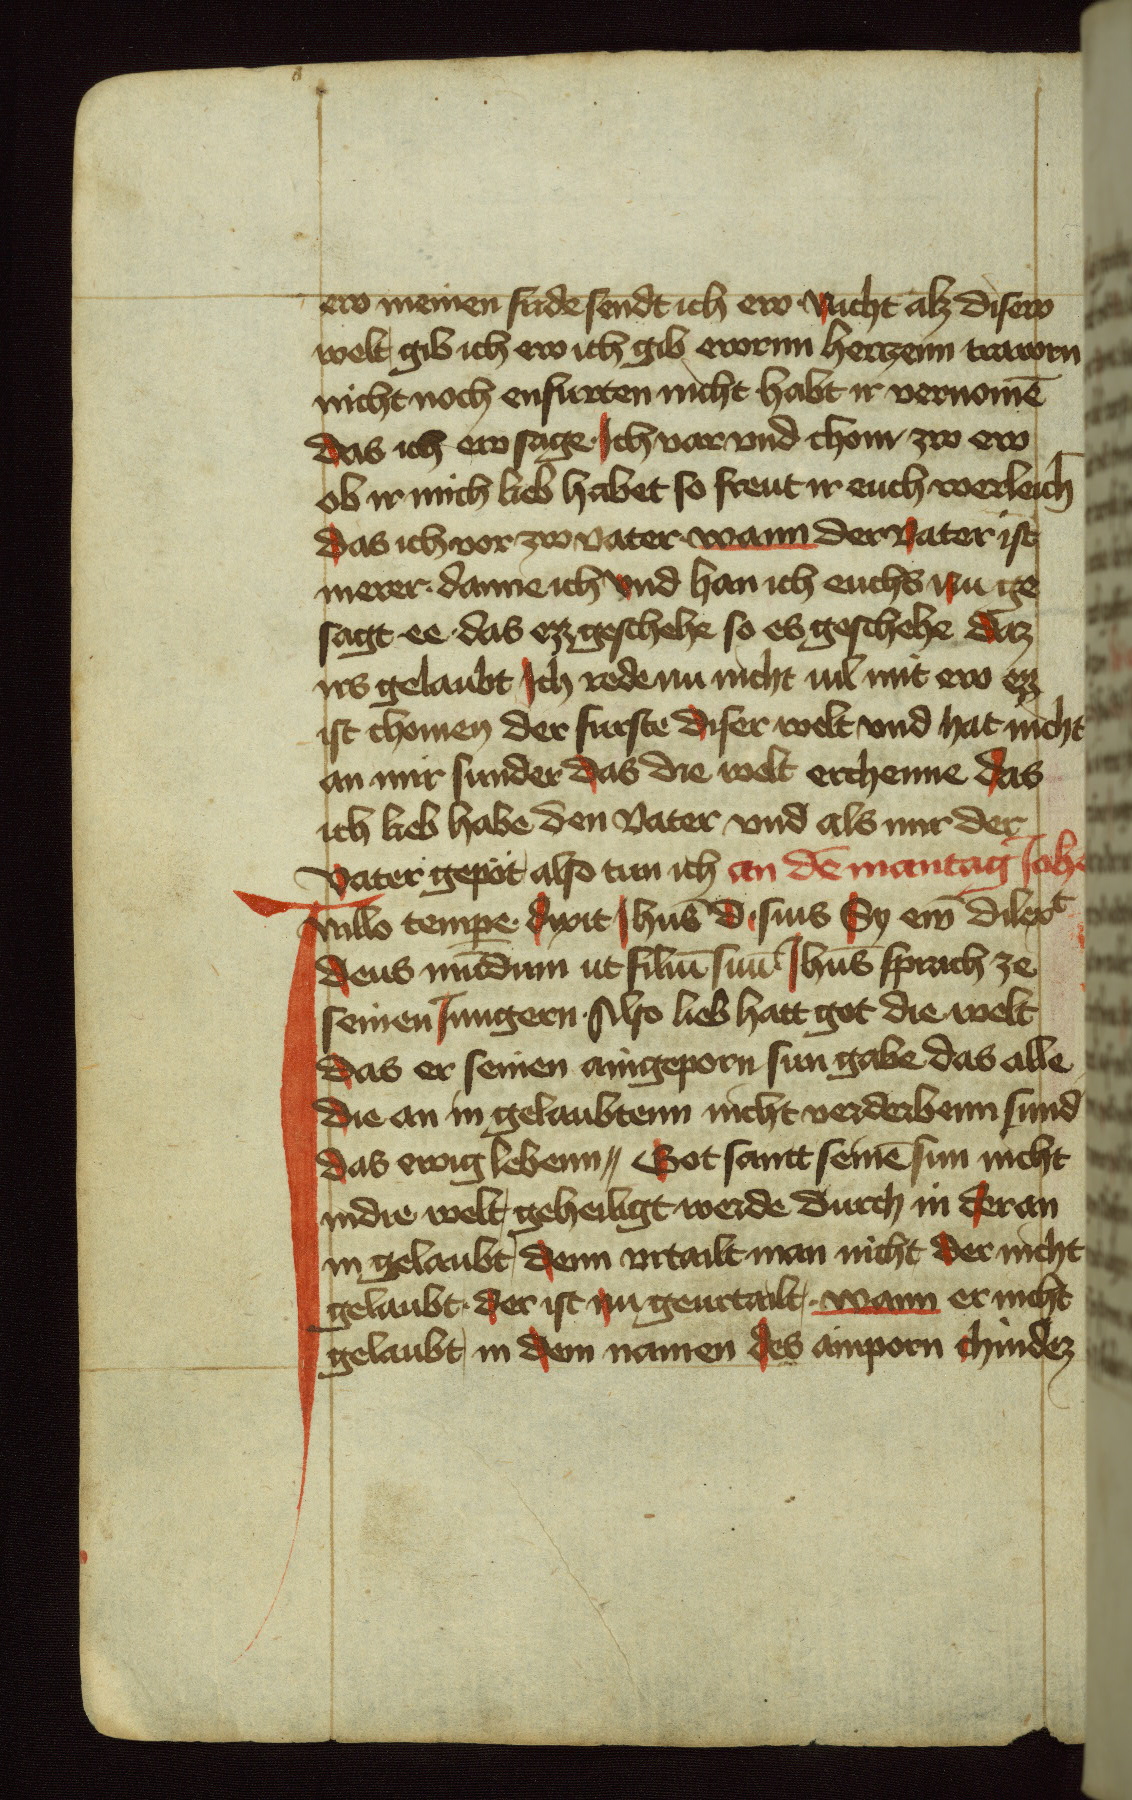 ew meinen fride sendt ich ew · Nicht alz disew
welt gib ich ew ich gib ewrnn hertzenn trawrn
nicht noch enfurten nicht habt ir vernomē
das ich ew sage · Ich var vnd chom zw ew
ob ir mich lieb habet so freut ir euch werleich
das ich vor zw vater · wann der Vater ist
merer · danne ich vnd han ich euchs nu ge
sagt ee · das ez geschehe so es geschehe daz
irs gelaubt Ich rede nu nicht uil mit ew ez
ist chomen der furste diser welt vnd hat nicht
an mir sunder das die welt erchenne das
ich lieb habe den Vater vnd als mir der
Vater gepot also tun ich an dē mantag Johe
In illo tempe · dixit Ihus̄ d · suis Sy em̄ dilexᵗ
deus mūdum ut filiū suū · Ihus̄ sprach ze
seinen Jungern · Also lieb hatt got die welt
das er seinen aingeporn sun gabe das alle
die an in gelaubtenn nicht verderbenn sund
das ewig lebenn // Got santt seinē sun nicht
in die welt geheiligt werde durch in der an
in gelaubt denn vrtailt man nicht der nicht
gelaubt · der ist nu geurtailt · wann er nicht
gelaubt in dem namen des ainporn chindez